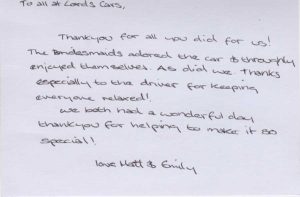 To all at Lords Cars,
Thankyou for all you did for us!
The Bridesmaids adored the car & throughly
enjoyed themselves. As did we. Thanks
especially to the driver for keeping
everyone relaxed!
we both had a wonderful day
thankyou for helping to make it so
special!
love Matt & Emily